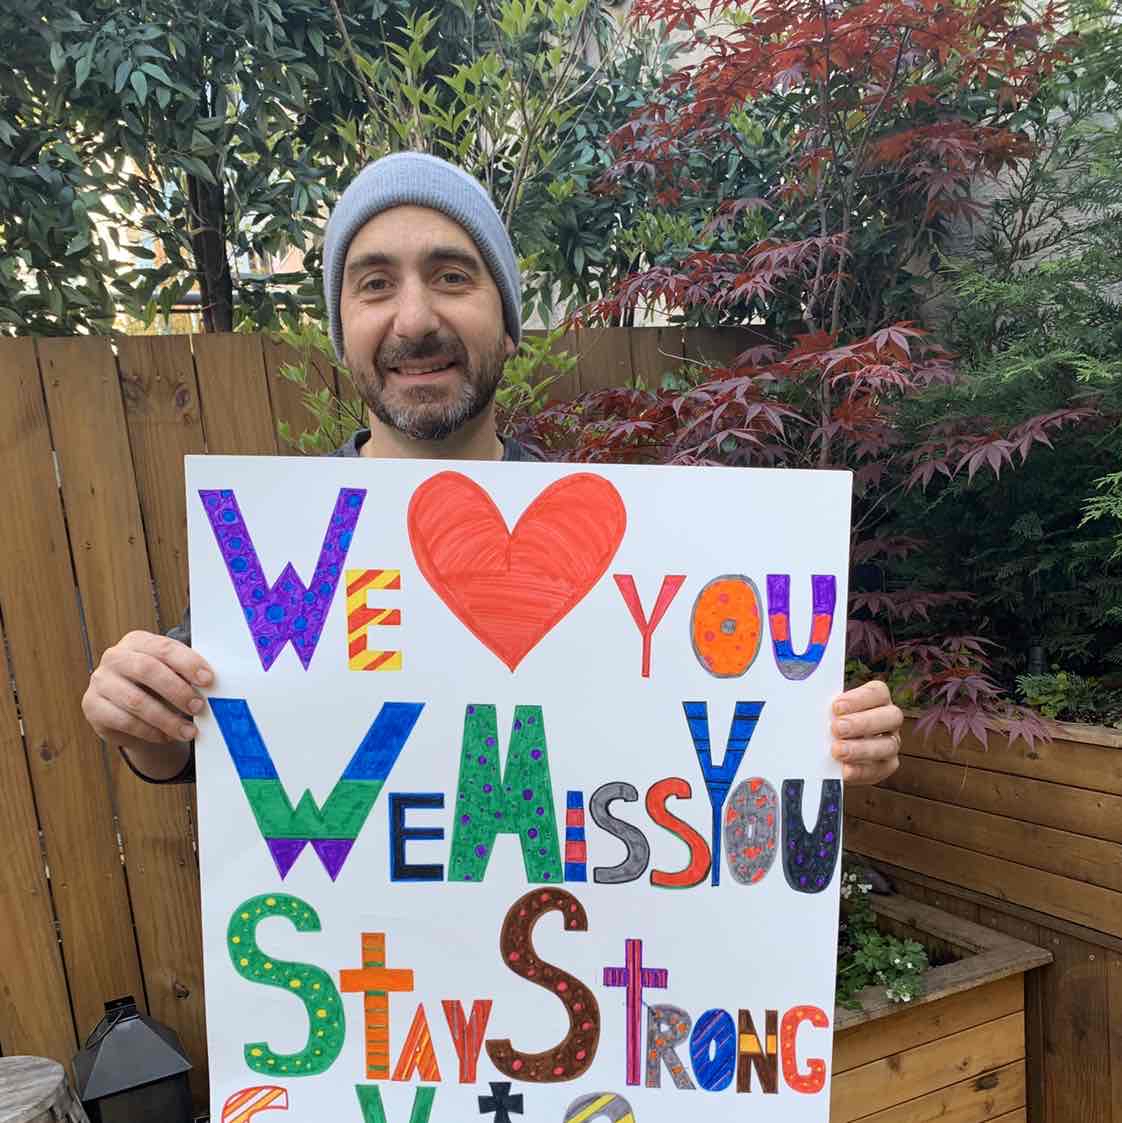 We ❤ YOU
WE MISS YOU
STAY STRONG